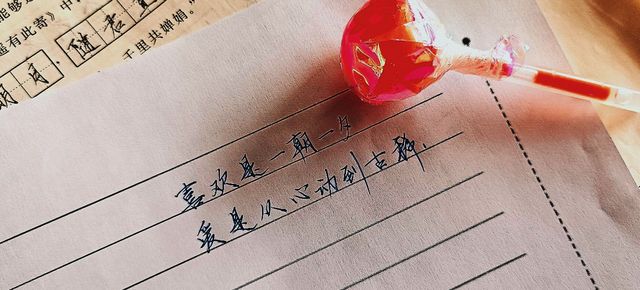 能够
遥有此寄》中,
随君直
千里共婵娟。”
明月,
喜欢是一朝一夕
爱是从心动到古稀.